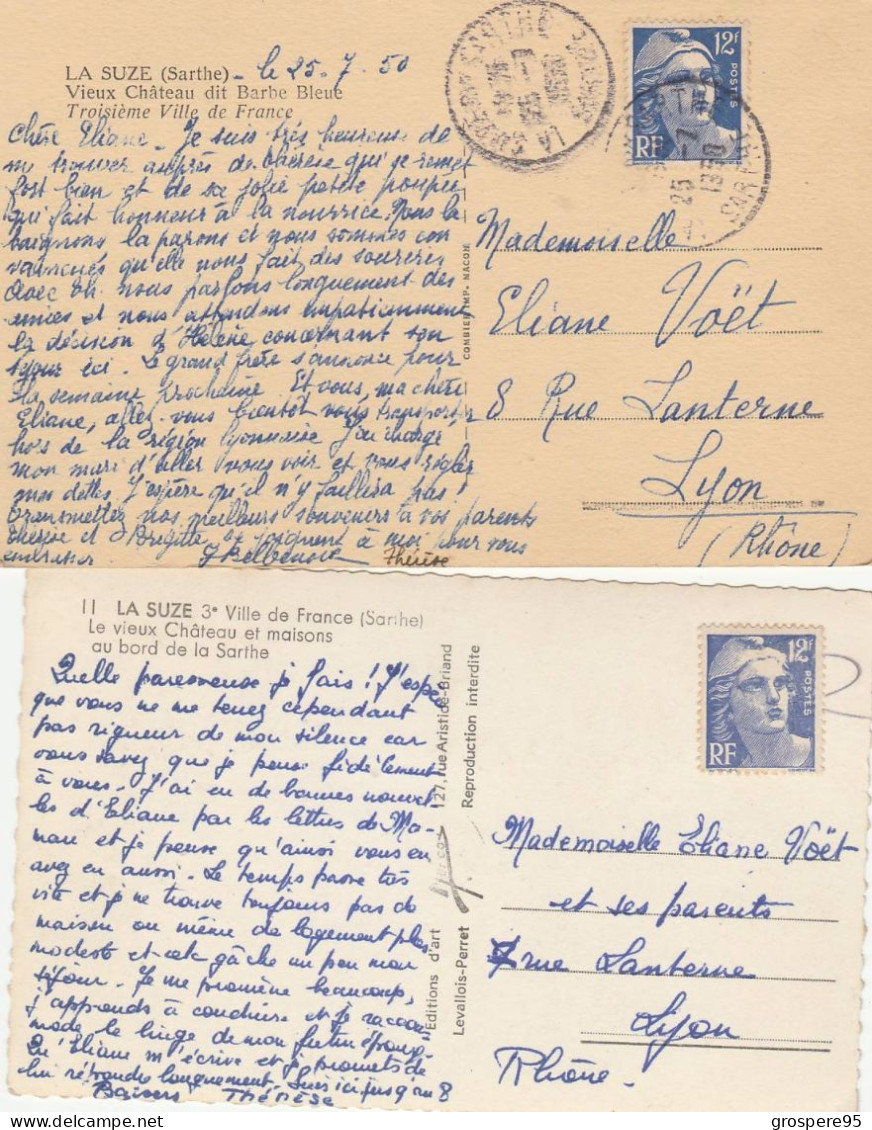 LA SUZE (Sarthe) - le 25. 7. 50
Vieux Château dit Barbe Bleue
Troisième Ville de France
Chère Eliane - Je suis très heureuse de
me trouver auprès de Thérèse qui se remet
fort bien et de sa jolie petite poupée
qui fait honneur à la nourrice. Nous la
baignons la parons et nous sommes con
vaincues qu'elle nous fait des sourires
Avec nous parlons longuement des
amies et nous attendons impatiemment
la décision d'Hélène concernant son
séjour ici. Le grand frère s'annonce pour
la semaine prochaine. Et vous, ma chère
Eliane, allez-vous bientôt vous transporter
hors de la région lyonnaise J'ai chargé
mon mari d'aller vous voir et vous régler
mes dettes. J'espère qu'il n'y faillira pas!
Transmettez nos meilleurs souvenirs à vos parents
Thérèse et Brigitte se joignent à moi pour vous
embrasser Thérèse
COMBIER IMP. MACON
12F
POSTES
RF
25 -7
1950
SARTHE
Mademoiselle
Eliane Voët
8 Rue Lanterne
Lyon
(Rhône)
11 LA SUZE 3e Ville de France (Sarthe)
Le vieux Château et maisons
au bord de la Sarthe
Quelle paresseuse je fais! J'espère
que vous ne me tenez cependant
pas rigueur de mon silence car
vous savez que je pense fidèlement
à vous. J'ai eu de bonnes nouvel
les d'Eliane par les lettres de Ma-
man et je pense qu'ainsi vous en
avez eu aussi. Le temps passe très
vite et je ne trouve toujours pas de
maison ou même de logement plus
modeste et cela gâche un peu mon
séjour. Je me promène beaucoup,
j'apprends à conduire et je raccom
mode le linge de mon futur époux
Qu'Eliane m'écrive et je promets de
lui répondre longuement. Suis ici jusqu'au 8
Baisers Thérèse
Editions d'art
Levallois-Perret
127, rue Aristide-Briand
Reproduction interdite
12F
POSTES
RF
Mademoiselle Eliane Voët
et ses parents
rue Lanterne
Lyon
Rhône.
grospere95